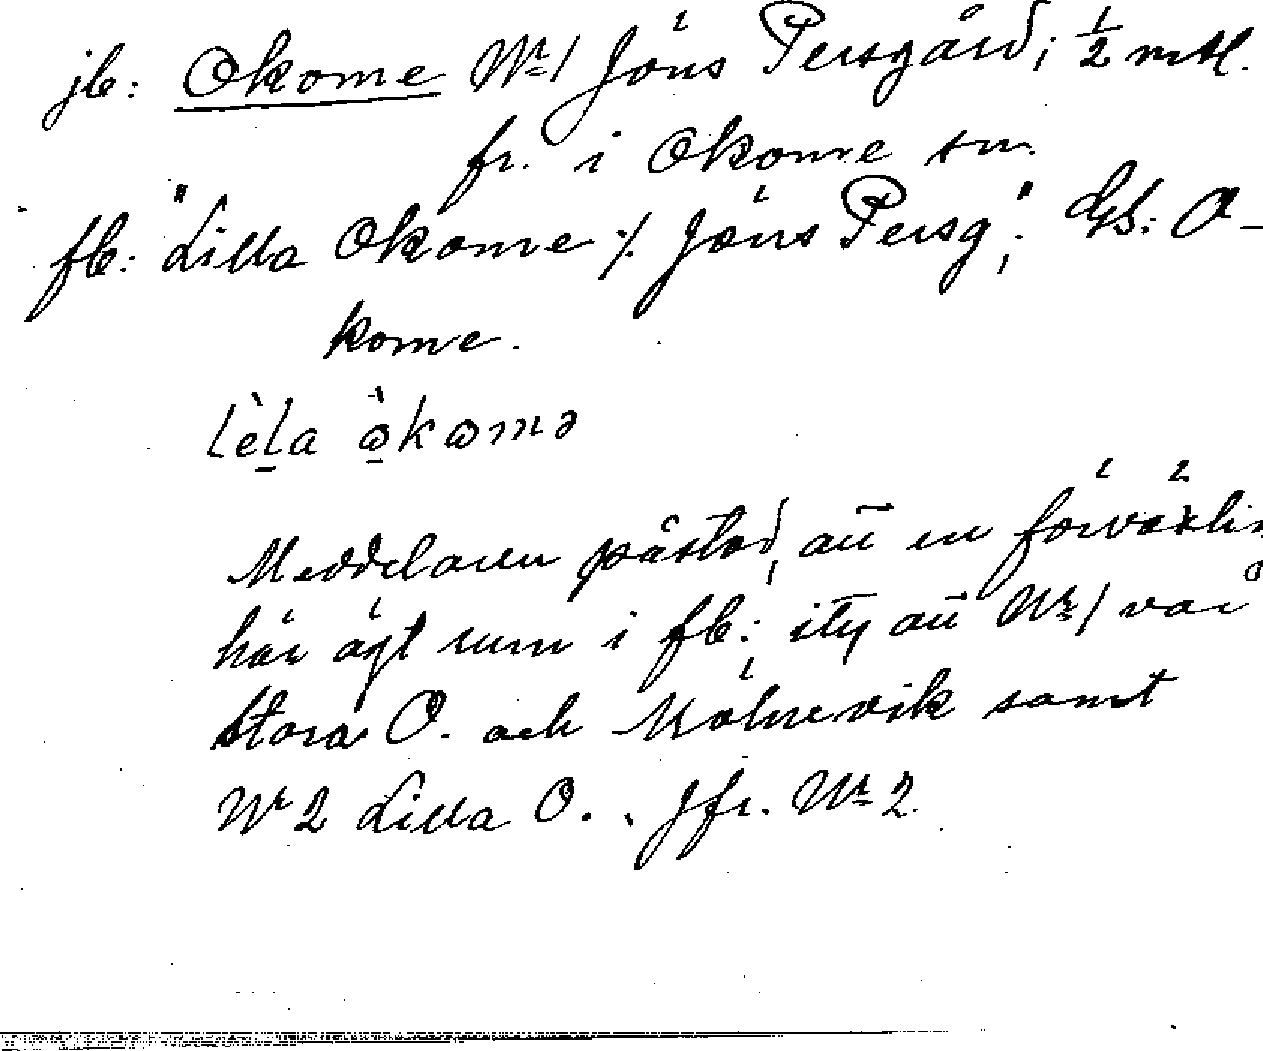 jb: Okome Nr 1 Jöns Persgård; 1/2 mtl.
fr. i Okome sn.
fb: "Lilla Okome 1/. Jöns Persg.", Gs: O-
kome.
Meddelaren påstod, att en förväxlin
här ägt rum i fb:; ity att Nr 1 var
Stora O. och Mölnevik samt
Nr 2 Lilla O. Jfr. Nr 2.